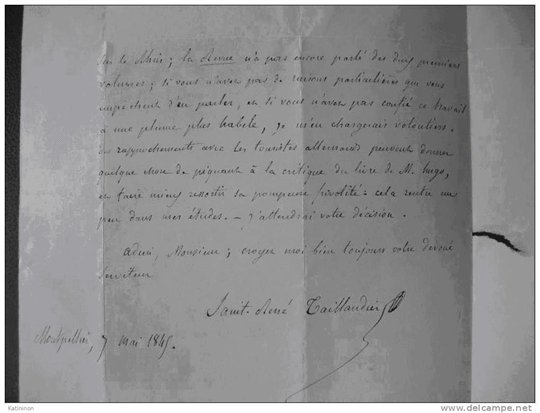 sur le Rhin ; la Revue n'a pas encore parlé des deux premiers
volumes ; si vous n'avez pas de raisons particulières qui vous
empêchent d'en parler, et si vous n'avez pas confié ce travail
à une plume plus habile, je m'en chargerais volontiers.
des rapprochements avec les touristes allemands peuvent donner
quelque chose de piquant à la critique du livre de M. hugo,
et faire mieux ressortir sa pompeuse frivolité : cela rentre un
peu dans mes études. — j'attendrai votre décision.
adieu, Monsieur ; croyez moi bien toujours votre dévoué
serviteur
Saint-René Taillandier
Montpellier, 7 mai 1845.
Katininon
delcampe.net